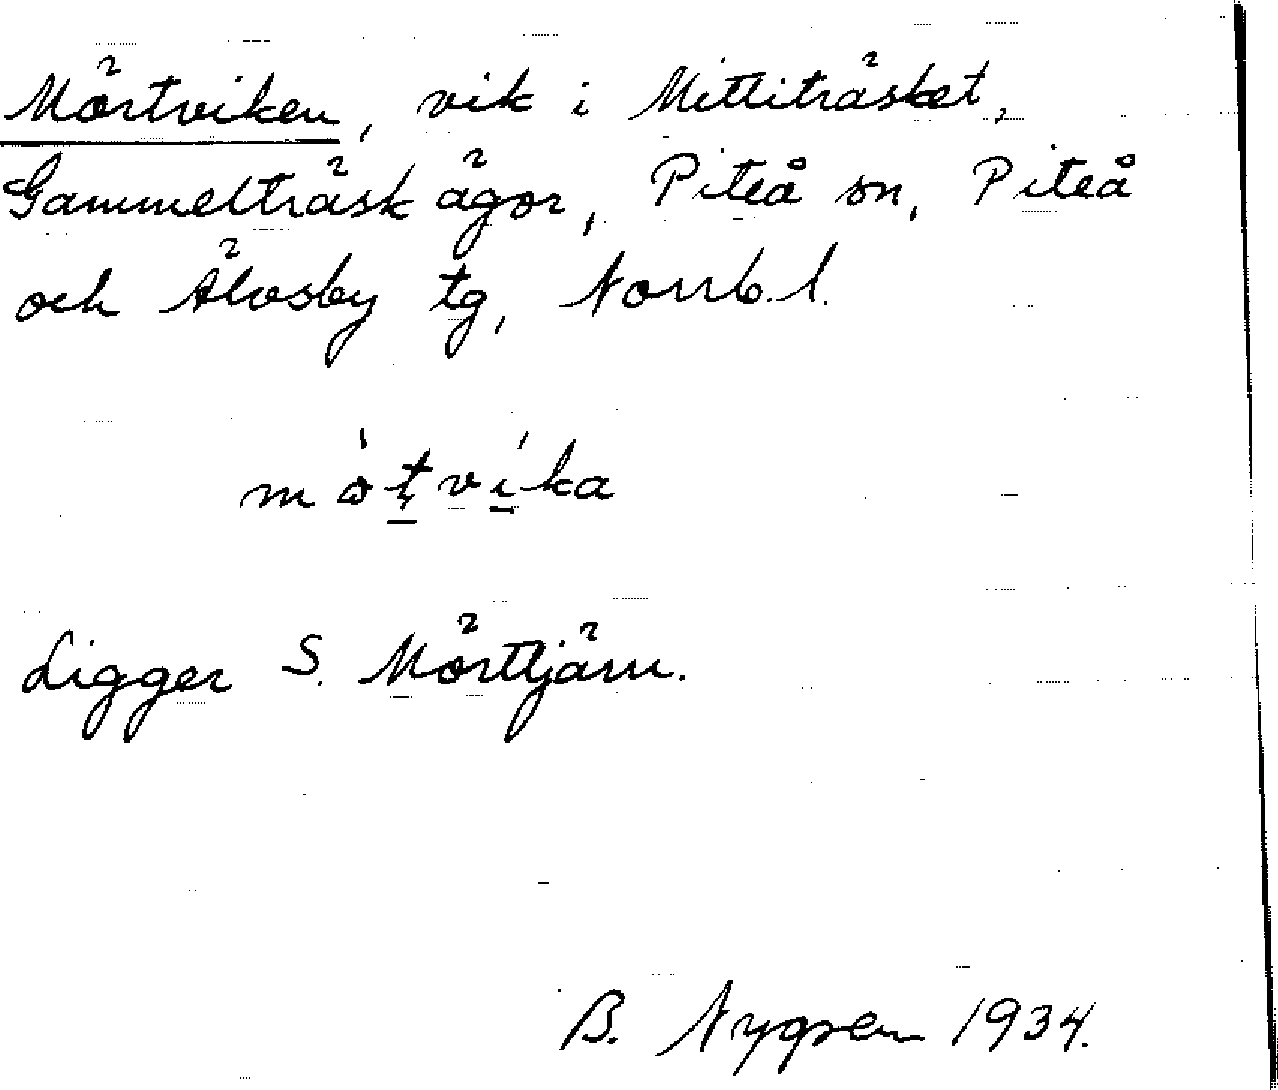 Mörtviken, vik i Mittiträsket,
Gammelträsk ägor, Piteå sn, Piteå
och Älvsby tg, Norrb. l.
mö̀ṭví̱ka
Ligger S. Mörttjärn.
B. Nygren 1934.